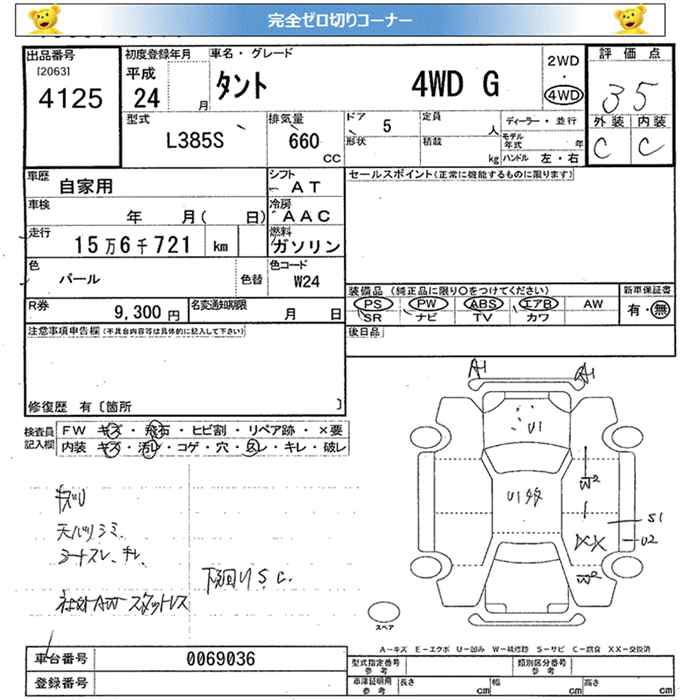 完全ゼロ切りコーナー
出品番号
[2063]
4125
初度登録年月
平成
24 月
車名・グレード
タント 4WD G
2WD
・
4WD
評価点
3.5
外装 内装
C C
型式
L385S
排気量
660
CC
ドア
5
形状
定員
人
積載
kg
ディーラー・並行
モデル年式 年
ハンドル 左・右
車歴
自家用
シフト
AT
車検
年 月( 日)
冷房
AAC
走行
15万6千721 km
燃料
ガソリン
色
パール
色替
色コード
W24
R券
9,300 円
名変通知期限
月 日
セールスポイント(正常に機能するものに限ります)
装備品(純正品に限り○をつけてください)
PS PW ABS エアB AW
SR ナビ TV カワ
新車保証書
有・無
後日品
注意事項申告欄(不具合内容等は具体的に記入して下さい)
修復歴 有〔箇所 〕
検査員記入欄
FW キズ・飛石・ヒビ割・リペア跡・×要
内装 キズ・汚レ・コゲ・穴・スレ・キレ・破レ
キズU
天バリシミ
シートスレ、キレ
社外AWースタットレス
下回りS.C.
A1 A1
U1
U1多
W2
S1
U2
XX
W2
スペア
A-キズ E-エクボ U-凹み W-補修跡 S-サビ C-腐食 XX-交換済
車台番号 0069036
登録番号
型式指定番号
参考
類別区分番号
参考
車庫証明用
参考
長さ cm 幅 cm 高さ cm